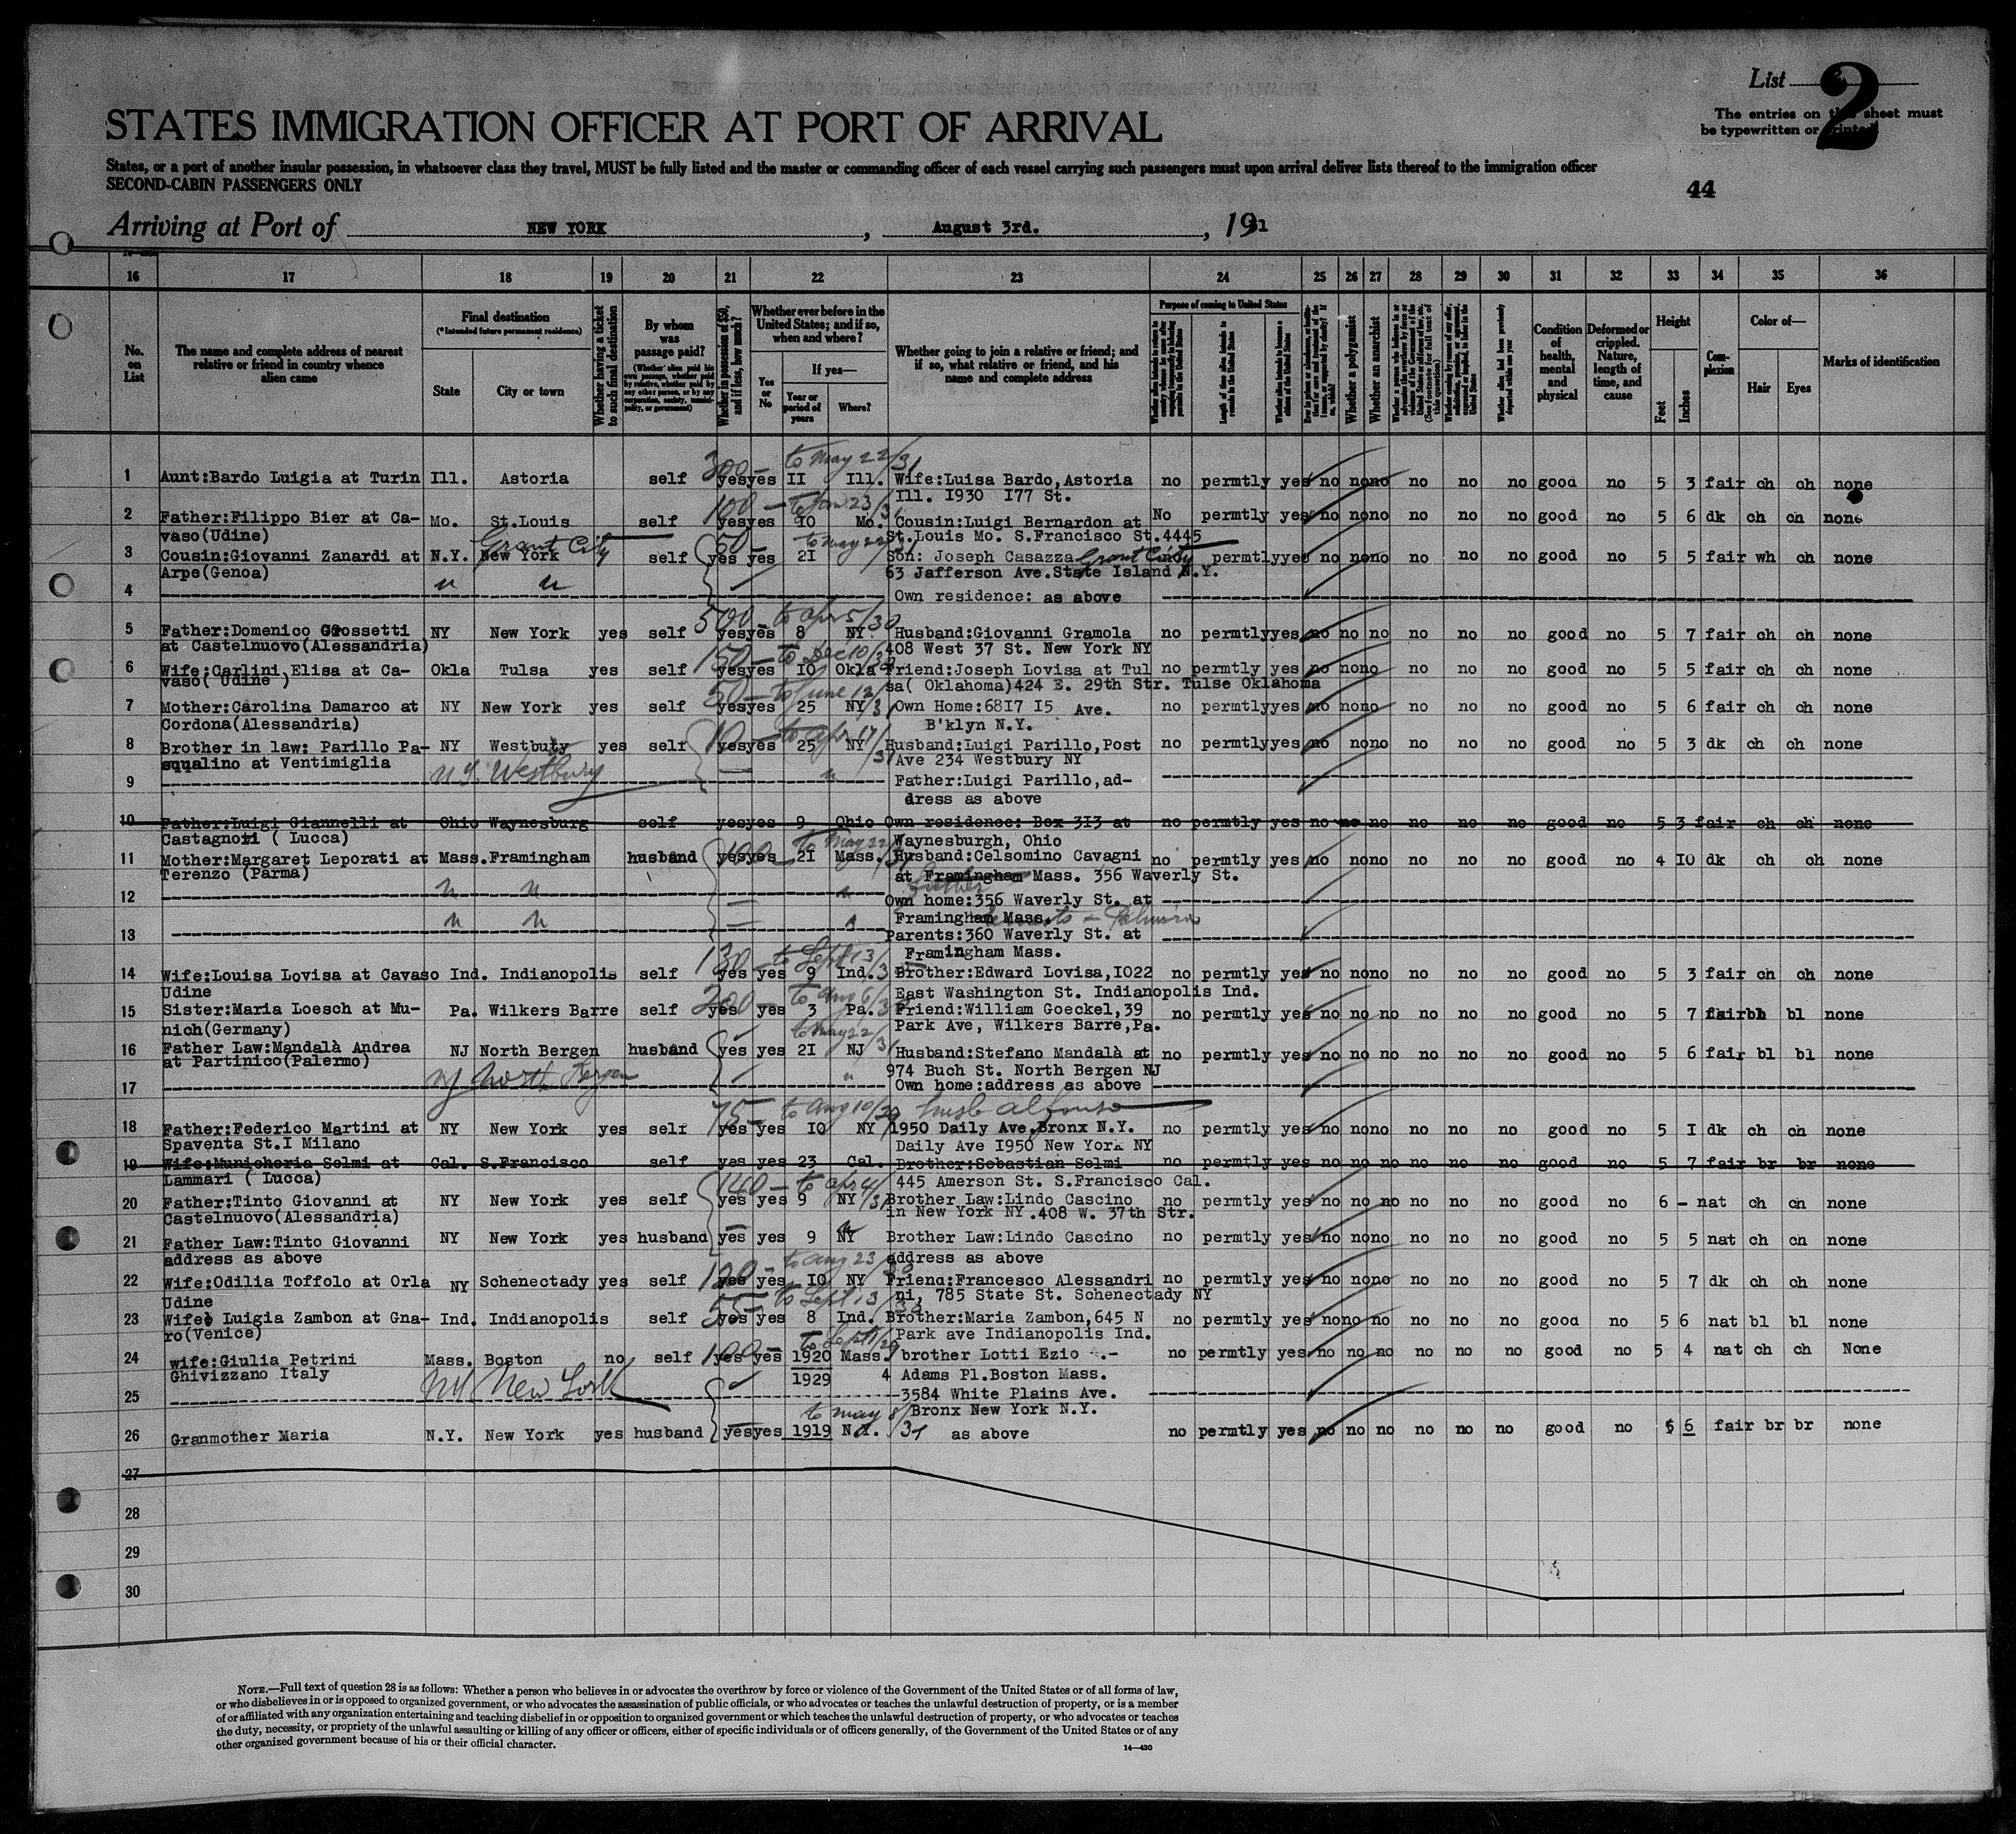 List 2
The entries on this sheet must
be typewritten or printed
STATES IMMIGRATION OFFICER AT PORT OF ARRIVAL
States, or a port of another insular possession, in whatsoever class they travel, MUST be fully listed and the master or commanding officer of each vessel carrying such passengers must upon arrival deliver lists thereof to the immigration officer
SECOND-CABIN PASSENGERS ONLY
44
Arriving at Port of NEW YORK, August 3rd., 1931
16 17 18 19 20 21 22 23 24 25 26 27 28 29 30 31 32 33 34 35 36
No. on List
The name and complete address of nearest relative or friend in country whence alien came
Final destination
(*Intended future permanent residence)
State
City or town
Whether having a ticket to such final destination
By whom was passage paid?
(Whether alien paid his own passage, whether paid by relative, whether paid by any other person, or by any corporation, society, municipality, or government)
Whether in possession of $50, and if less, how much?
Whether ever before in the United States; and if so, when and where?
Yes or No
If yes—
Year or period of years
Where?
Whether going to join a relative or friend; and if so, what relative or friend, and his name and complete address
Purpose of coming to United States
Length of time alien intends to remain in the United States
Whether a polygamist
Whether an anarchist
Condition of health, mental and physical
Deformed or crippled. Nature, length of time, and cause
Height
Feet
Inches
Complexion
Color of—
Hair
Eyes
Marks of identification
300 - to May 22/31
1 Aunt:Bardo Luigia at Turin Ill. Astoria self yes yes II Ill. Wife:Luisa Bardo,Astoria no permtly yes no no no no no no good no 5 3 fair ch ch none
Ill. I930 I77 St.
100 - to Jan 23/31
2 Father:Filippo Bier at Ca- Mo. St.Louis self yes yes IO Mo. Cousin:Luigi Bernardon at No permtly yes no no no no no no good no 5 6 dk ch ch none
vaso(Udine) St.Louis Mo. S.Francisco St.4445
Grant City 50 - to May 22
3 Cousin:Giovanni Zanardi at N.Y. New York self yes yes 2I Son: Joseph Casazza Grant City permtly yes no no no no no no good no 5 5 fair wh ch none
Arpe(Genoa) 63 Jafferson Ave.State Island N.Y.
4 " " Own residence: as above
500 - to Apr 5/30
5 Father:Domenico Grossetti NY New York yes self yes yes 8 NY Husband:Giovanni Gramola no permtly yes no no no no no no good no 5 7 fair ch ch none
at Castelnuovo(Alessandria) 408 West 37 St. New York NY
150 - to Dec 10/30
6 Wife:Carlini Elisa at Ca- Okla Tulsa yes self yes yes IO Okla Friend:Joseph Lovisa at Tul no permtly yes no no no no no no good no 5 5 fair ch ch none
vaso( Udine ) sa( Oklahoma)424 E. 29th Str. Tulse Oklahoma
50 - to June 12/31
7 Mother:Carolina Damarco at NY New York yes self yes yes 25 NY Own Home:68I7 I5 Ave. no permtly yes no no no no no no good no 5 6 fair ch ch none
Cordona(Alessandria) B'klyn N.Y.
10 - to Apr 17/31
8 Brother in law: Parillo Pa- NY Westbuty yes self yes yes 25 NY Husband:Luigi Parillo,Post no permtly yes no no no no no no good no 5 3 dk ch ch none
squalino at Ventimiglia Ave 234 Westbury NY
9 N.Y. Westbury " Father:Luigi Parillo,ad-
dress as above
10 Father:Luigi Giannelli at Ohio Waynesburg self yes yes 9 Ohio Own residence: Box 3I3 at no permtly yes no no no no no no good no 5 3 fair ch ch none
Castagnori ( Lucca) Waynesburgh, Ohio
100 to May 22
11 Mother:Margaret Leporati at Mass. Framingham husband yes yes 2I Mass. Husband:Celsomino Cavagni no permtly yes no no no no no no good no 4 IO dk ch ch none
Terenzo (Parma) at Framingham Mass. 356 Waverly St.
12 " " " father
Own home:356 Waverly St. at
13 " " " Framingham Mass.
Parents:360 Waverly St. at
Framingham Mass.
130 - to Sept 13/3
14 Wife:Louisa Lovisa at Cavaso Ind. Indianopolis self yes yes 9 Ind. Brother:Edward Lovisa,IO22 no permtly yes no no no no no no good no 5 3 fair ch ch none
Udine East Washington St. Indianopolis Ind.
200 - to Aug 6/3
15 Sister:Maria Loesch at Mu- Pa. Wilkers Barre self yes yes 3 Pa. Friend:William Goeckel,39 no permtly yes no no no no no no good no 5 7 fair bl bl none
nich(Germany) Park Ave, Wilkers Barre,Pa.
to May 22/31
16 Father Law:Mandalà Andrea NJ North Bergen husband yes yes 2I NJ Husband:Stefano Mandalà at no permtly yes no no no no no no good no 5 6 fair bl bl none
at Partinico(Palermo) 974 Buch St. North Bergen NJ
17 NJ North Bergen " Own home:address as above
75 - to Aug 10/29 husb Alfonso
18 Father:Federico Martini at NY New York yes self yes yes IO NY 1950 Daily Ave.Bronx N.Y. no permtly yes no no no no no no good no 5 I dk ch ch none
Spaventa St.I Milano Daily Ave I950 New York NY
19 Wife:Munichoria Selmi at Cal. S.Francisco self yes yes 23 Cal. Brother:Sebastian Selmi no permtly yes no no no no no no good no 5 7 fair br br none
Lammari ( Lucca) 445 Amerson St. S.Francisco Cal.
140 - to Apr 4/31
20 Father:Tinto Giovanni at NY New York yes self yes yes 9 NY Brother Law:Lindo Cascino no permtly yes no no no no no no good no 6 - nat ch ch none
Castelnuovo(Alessandria) in New York NY .408 W. 37th Str.
21 Father Law:Tinto Giovanni NY New York yes husband yes yes 9 NY Brother Law:Lindo Cascino no permtly yes no no no no no no good no 5 5 nat ch ch none
address as above address as above
120 - to Aug 23
22 Wife:Odilia Toffolo at Orla NY Schenectady yes self yes yes IO NY Friend:Francesco Alessandri no permtly yes no no no no no no good no 5 7 dk ch ch none
Udine ni, 785 State St. Schenectady NY
55 - to Sept 13/30
23 Wife: Luigia Zambon at Gna- Ind. Indianopolis self yes yes 8 Ind. Brother:Maria Zambon,645 N no permtly yes no no no no no no good no 5 6 nat bl bl none
ro(Venice) Park ave Indianopolis Ind.
100 - to Sept 1/29
24 wife:Giulia Petrini Mass. Boston no self yes yes 1920 Mass. brother Lotti Ezio -.- no permtly yes no no no no no no good no 5 4 nat ch ch None
Ghivizzano Italy 1929 4 Adams Pl.Boston Mass.
25 NY New York 3584 White Plains Ave.
to May 8/31 Bronx New York N.Y.
26 Granmother Maria N.Y. New York yes husband yes yes 1919 N.Y. as above no permtly yes no no no no no no good no 5 6 fair br br none
27
28
29
30
NOTE.—Full text of question 28 is as follows: Whether a person who believes in or advocates the overthrow by force or violence of the Government of the United States or of all forms of law,
or who disbelieves in or is opposed to organized government, or who advocates the assassination of public officials, or who advocates or teaches the unlawful destruction of property, or is a member
of or affiliated with any organization entertaining and teaching disbelief in or opposition to organized government or which teaches the unlawful destruction of property, or who advocates or teaches
the duty, necessity, or propriety of the unlawful assaulting or killing of any officer or officers, either of specific individuals or of officers generally, of the Government of the United States or of any
other organized government because of his or their official character.
14—430